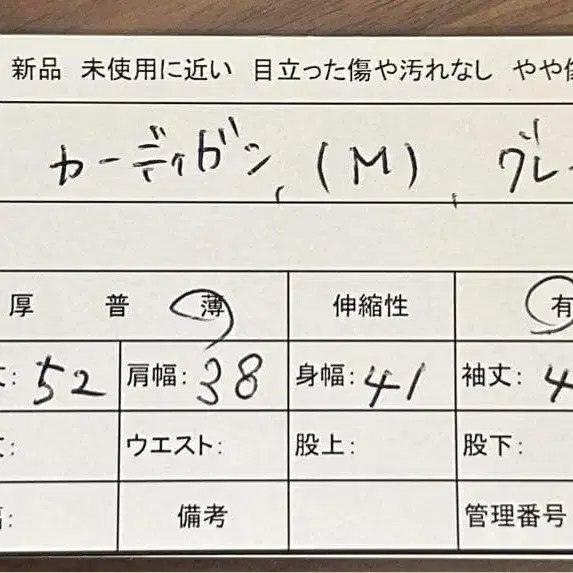 新品 未使用に近い 目立った傷や汚れなし やや
カーディガン, (M), グレー
厚 普 薄 伸縮性 有
丈: 52 肩幅: 38 身幅: 41 袖丈: 4
丈: ウエスト: 股上: 股下:
備考 管理番号